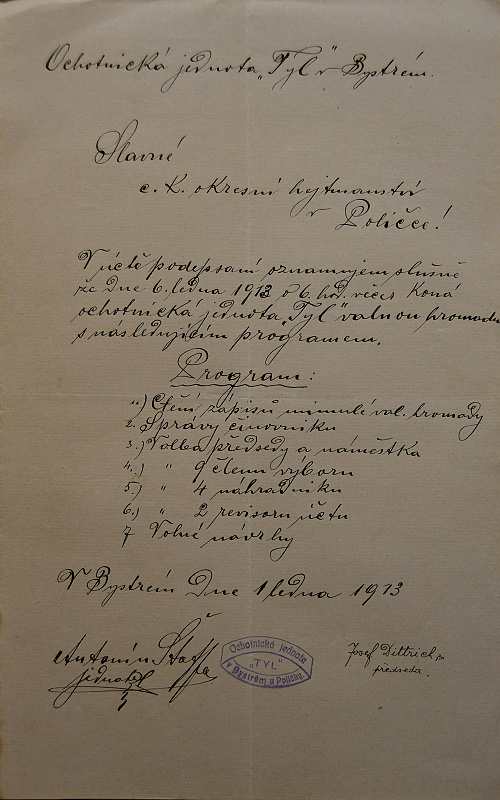 Ochotnická jednota „Tyl" v Bystrém.
Slavné
c. k. okresní hejtmanství
v Poličce!
V úctě podepsaní oznamujem slušně
že dne 6. ledna 1913 o 6. hod. večer koná
ochotnická jednota „Tyl" valnou hromadu
s následujícím programem.
Program:
1.) Čtení zápisů minulé val. hromady
2. Správy činovníku
3.) Volba předsedy a náměstka
4.) " 9 členu výboru
5.) " 4 náhradníku
6.) " 2 revisoru účtu
7 Volné návrhy
V Bystrém Dne 1 ledna 1913
Antonín
jednatel
Ochotnická jednota
„TYL"
v Bystrém u Poličky.
Josef Dittrich
předseda.